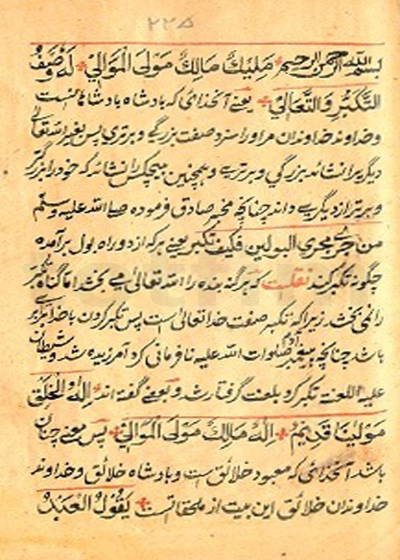 ۲۲۵
بسم الله الرحمن الرحيم مَلِيْكٌ مَالِكٌ مَوْلَى الْمَوَالِيْ لَهٗ وَصْفُ
التَّكَبُّرِ وَالتَّعَالِيْ يعنے آنخدائى كه بادشاه بادشاهانست
وخداوند خداوندان مر اورا سزد صفت بزرگے وبرترى پس بغير الله تعالى
ديگريرا نشايد بزرگى وبرترے وهمچنين هيچكس را نشايد كه خود را بزرگ
وبرتر از ديگرے داند چنانچه مخبر صادق فرموده صلى الله عليه وسلم
من خرج من مجرى البولين فكيف تكبر يعنے هركه از دو راه بول برآمده
چگونه تكبر كند نقلست كه هر گنه بنده را الله تعالى مے بخشد اما گناه تكبر
را نمى بخشد زيرا كه تكبر صفت خداتعالى است پس تكبر كردن باخدا برابرے
باشد چنانچه مهتر آدم صلوات الله عليه نافرمانى كرد آمرزيده شد وشيطان
عليه اللعنة تكبر كرد بلعنت گرفتار شد وبعضے گفته اند اِلٰهُ الْخَلْقِ
مَوْلَيْنَا قَدِيْمٌ اِلٰهٌ مَالِكٌ مَوْلَى الْمَوَالِيْ پس معنے چنان
باشد آنخدائى كه معبود خلائق ست وبادشاه خلائق وخداوند
خداوندان خلائق اين بيت از ملحقاتست يَقُوْلُ الْعَبْدُ